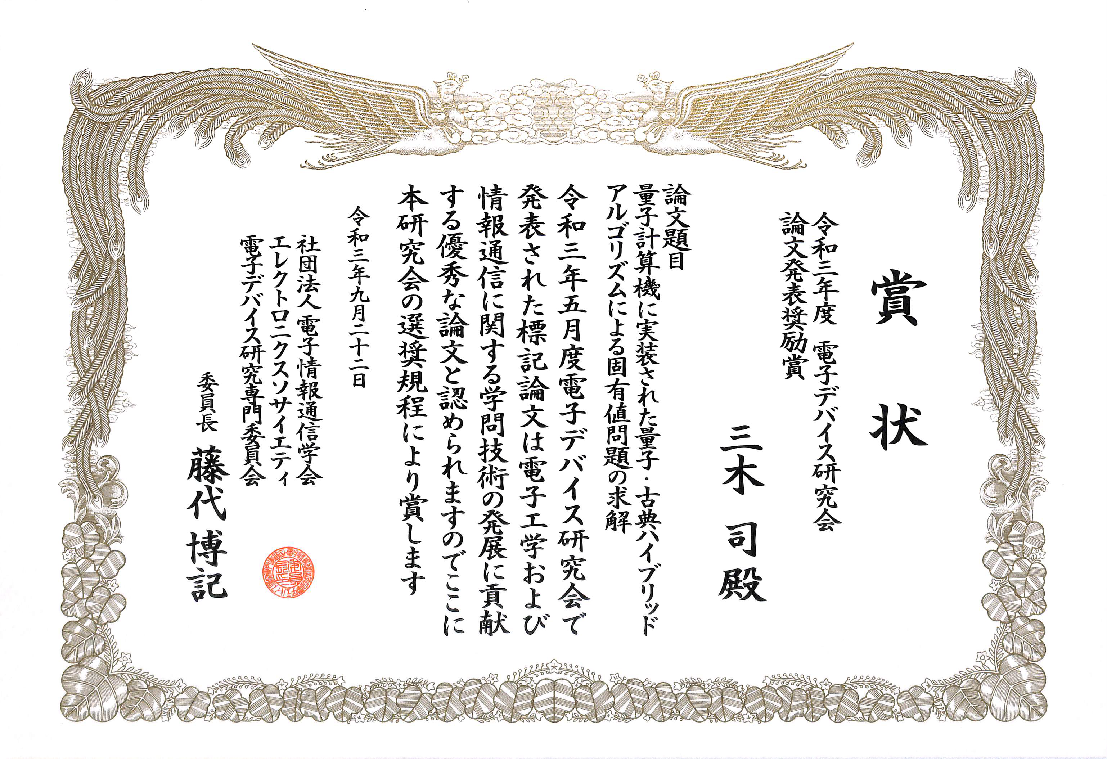 賞状
令和三年度 電子デバイス研究会
論文発表奨励賞
三木 司 殿
論文題目
量子計算機に実装された量子・古典ハイブリッド
アルゴリズムによる固有値問題の求解
令和三年五月度電子デバイス研究会で
発表された標記論文は電子工学および
情報通信に関する学問技術の発展に貢献
する優秀な論文と認められますのでここに
本研究会の選奨規程により賞します
令和三年九月二十二日
社団法人 電子情報通信学会
エレクトロニクスソサイエティ
電子デバイス研究専門委員会
委員長 藤代博記